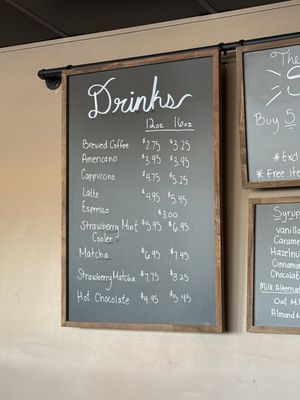 Drinks
12oz 16oz
Brewed Coffee $2.75 $3.25
Americano $3.95 $3.95
Cappuccino $4.75 $5.25
Latte $4.95 $5.45
Espresso $3.00
Strawberry Mint $5.95 $6.95
Cooler
Matcha $6.95 $7.45
Strawberry Matcha $7.75 $8.25
Hot Chocolate $4.95 $5.45
The
Buy 5
*Excl
*Free Ite
Syrup
Vanilla
Caramel
Hazelnu
Cinnamo
Chocolat
Milk Alternat
Oat M
Almond M